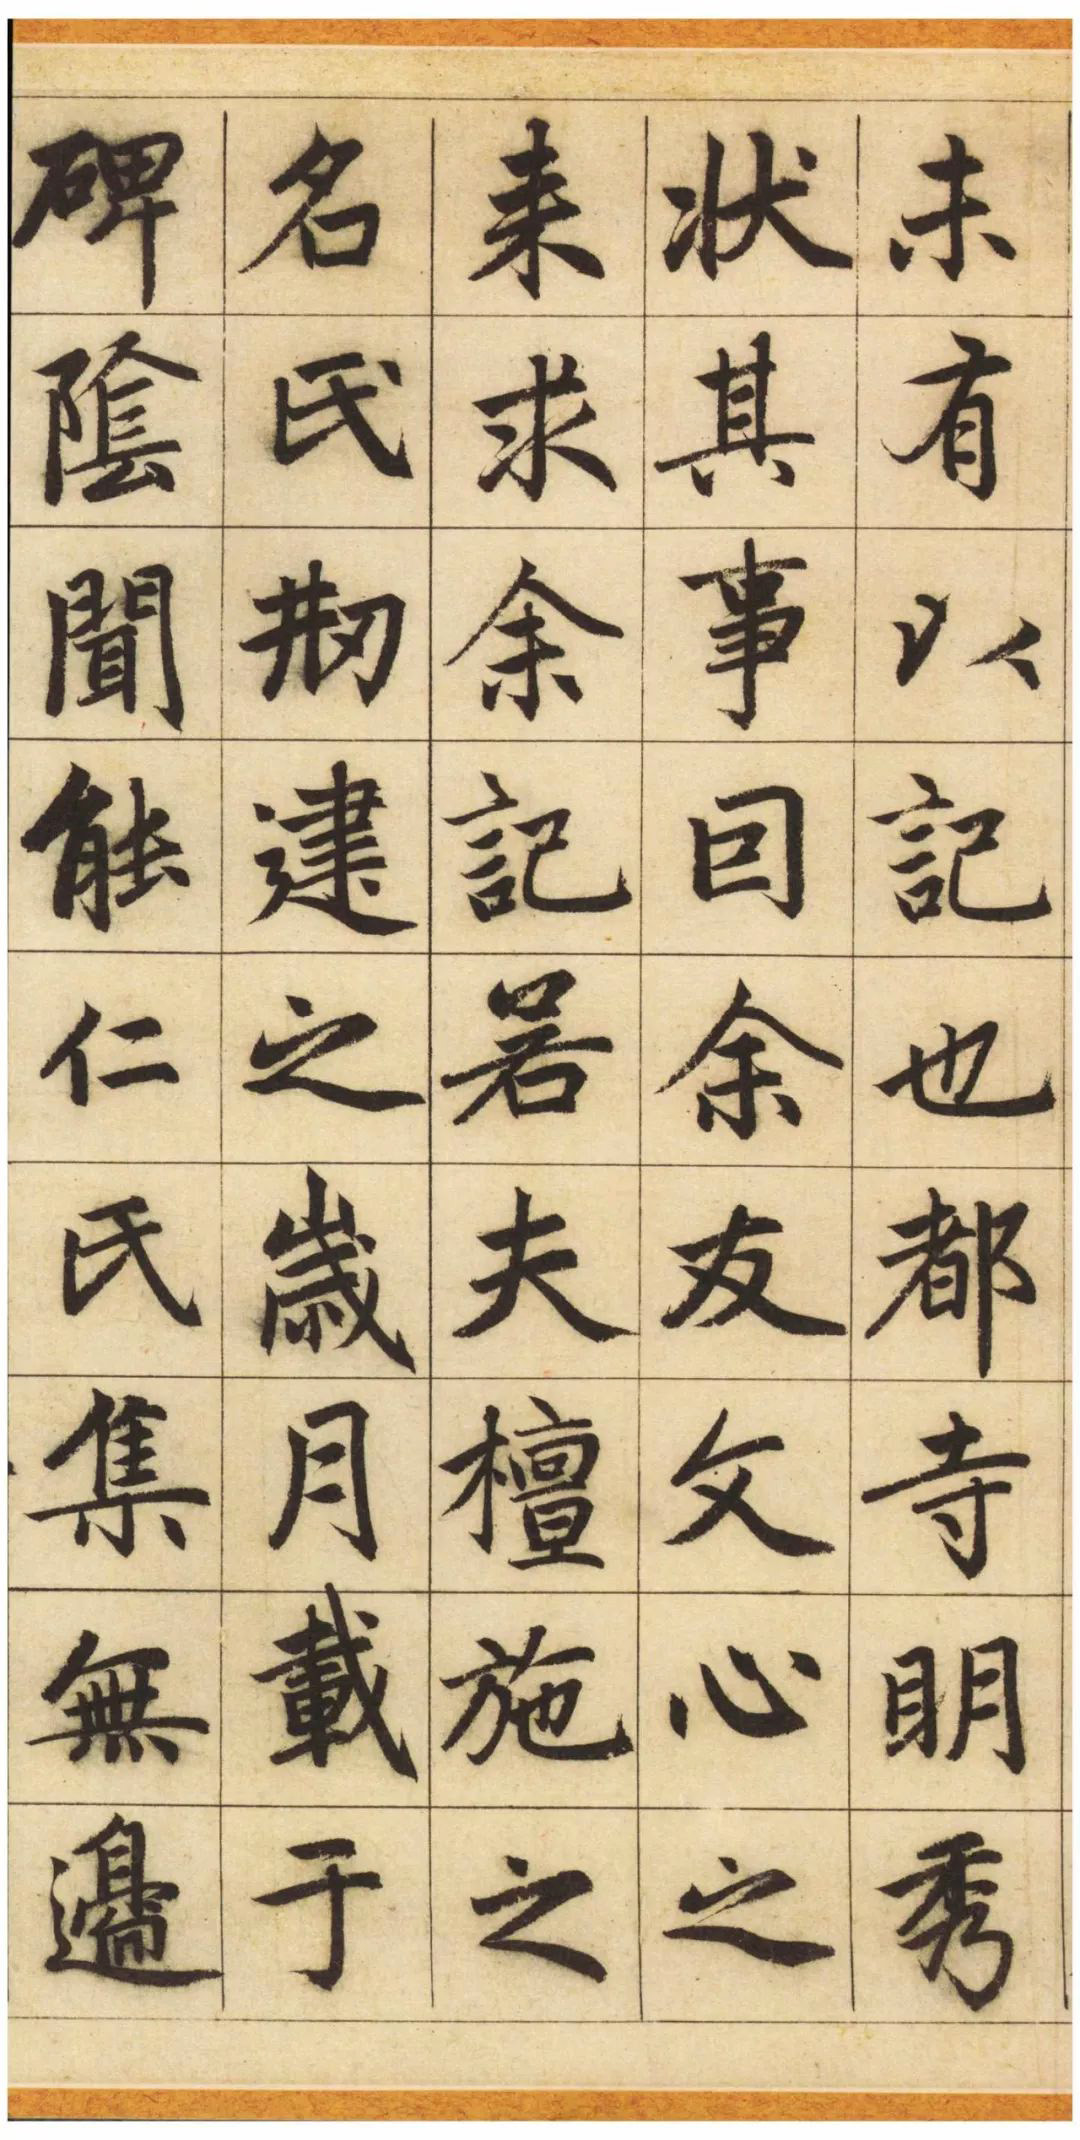 未有以記也都寺明秀
狀其事囙余友文心之
来求余記若夫檀施之
名氏剏建之歲月載于
碑陰聞能仁氏集無邊